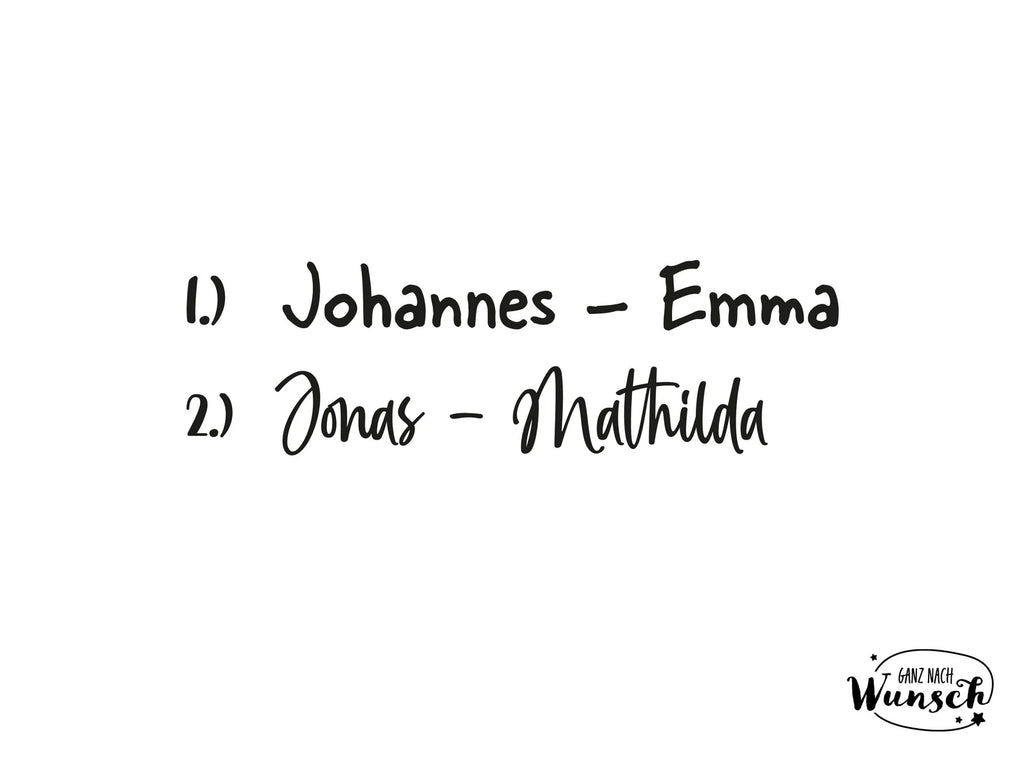 1.) Johannes – Emma
2.) Jonas – Mathilda
GANZ NACH
Wunsch